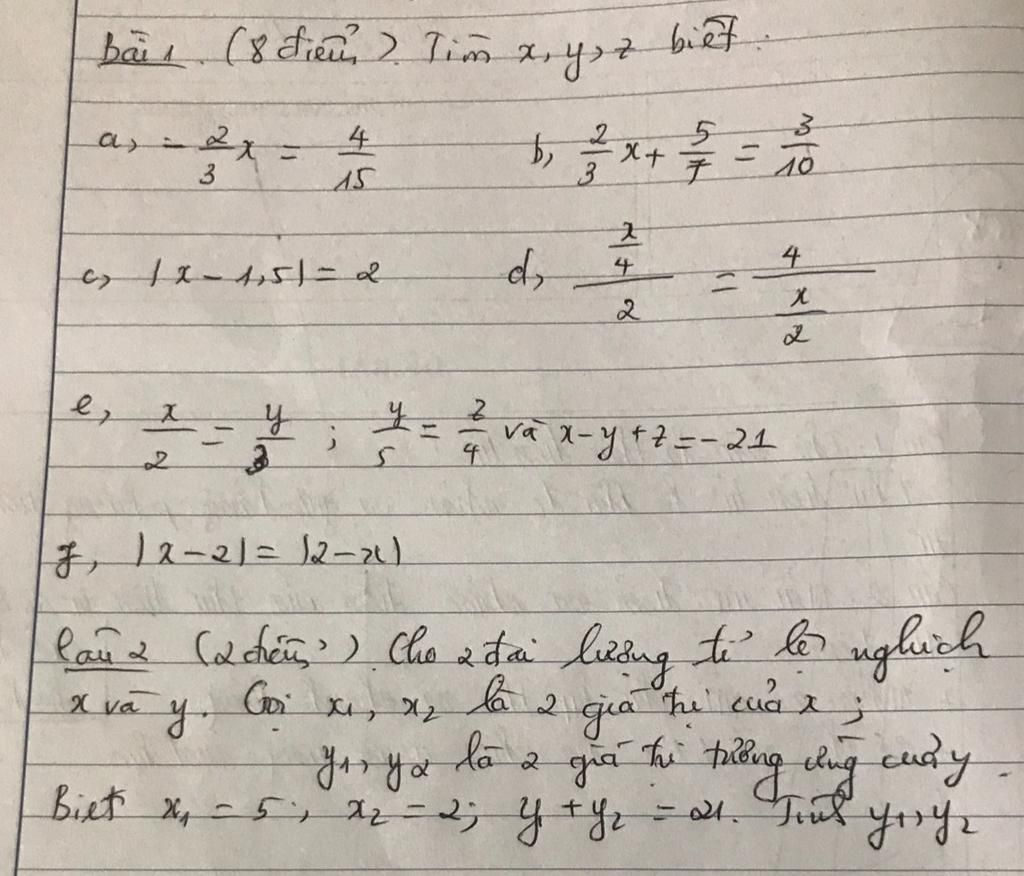 bài 1. (8 điểm). Tìm x, y, z biết:
a, -2/3 x = 4/15 b, 2/3 x + 5/7 = 3/10
c, |x - 1,5| = 2 d, (x/4)/2 = 4/(x/2)
e, x/2 = y/3 ; y/5 = z/4 và x - y + z = -21
f, |x - 2| = |2 - x|
Câu 2 (2 điểm). Cho 2 đại lượng tỉ lệ nghịch
x và y. Gọi x1, x2 là 2 giá trị của x ;
y1, y2 là 2 giá trị tương ứng của y.
Biết x1 = 5 ; x2 = 2; y1 + y2 = 21. Tính y1, y2